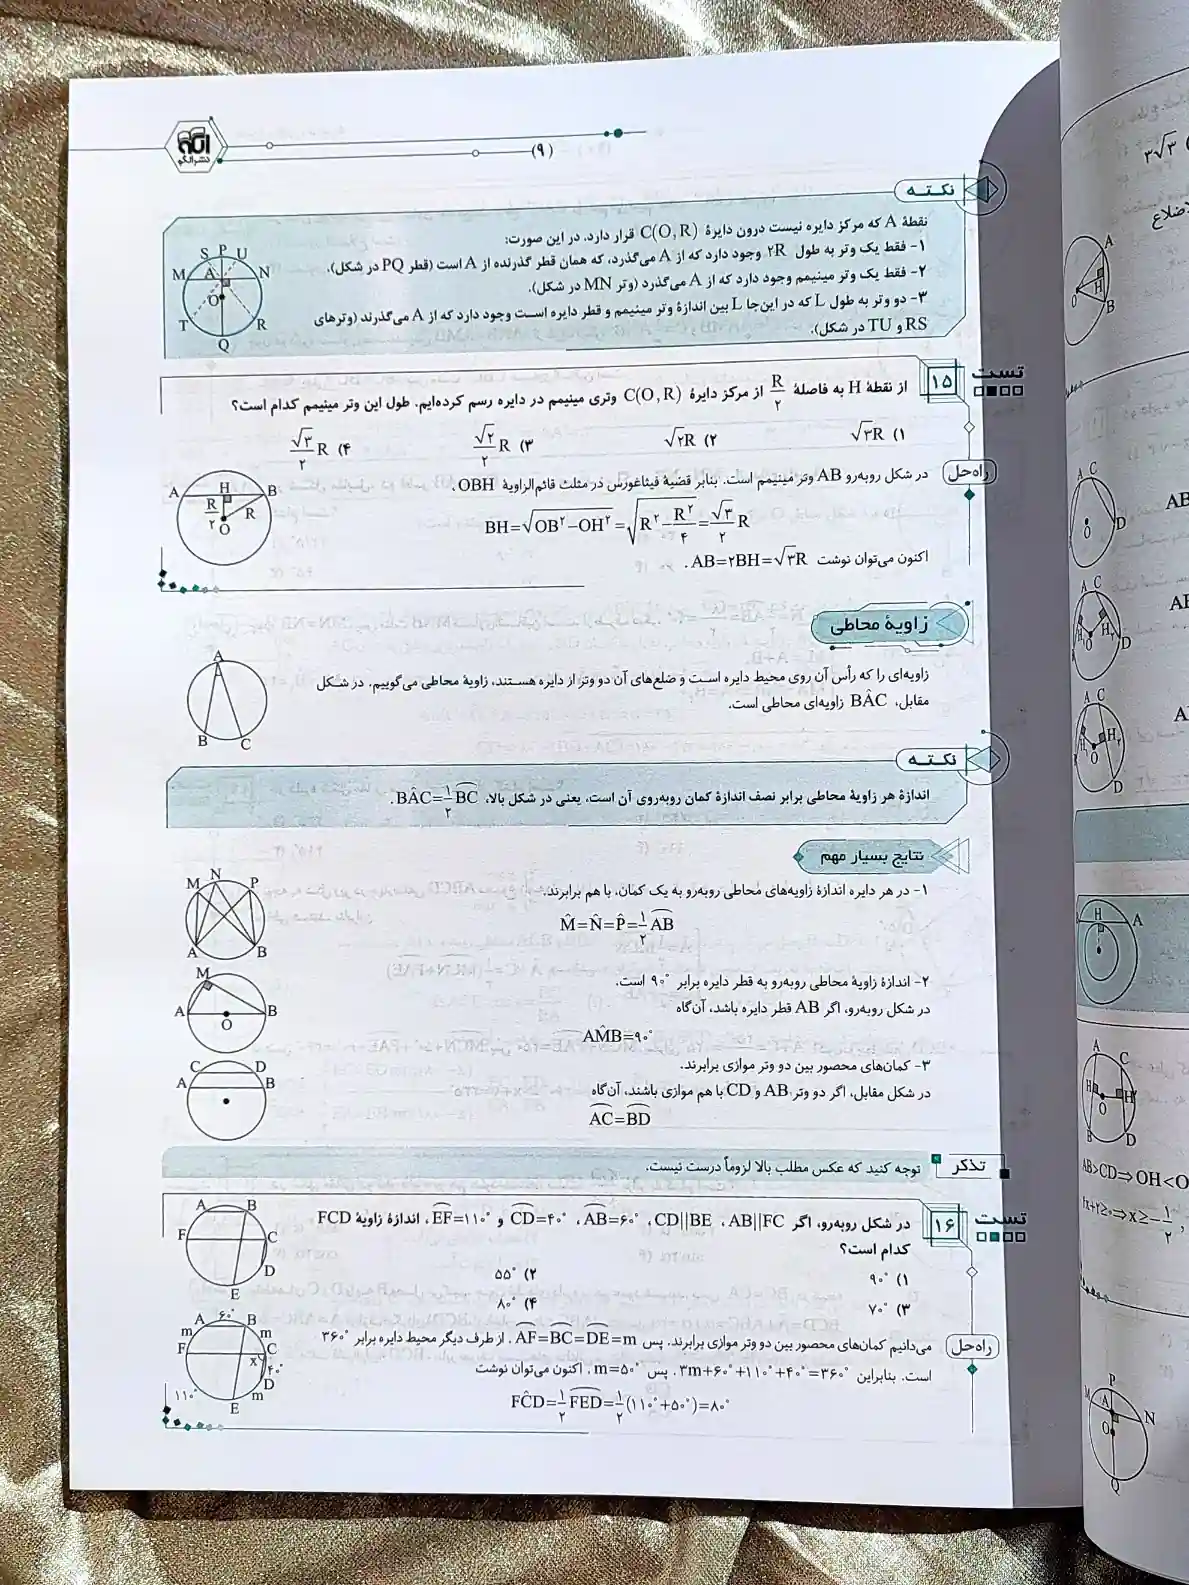 الگو
نشر الگو
(۹)
نکته
نقطهٔ A که مرکز دایره نیست درون دایرهٔ C(O, R) قرار دارد. در این صورت:
۱- فقط یک وتر به طول ۲R وجود دارد که از A می‌گذرد، که همان قطر گذرنده از A است (قطر PQ در شکل).
۲- فقط یک وتر مینیمم وجود دارد که از A می‌گذرد (وتر MN در شکل).
۳- دو وتر به طول L که در این‌جا L بین اندازهٔ وتر مینیمم و قطر دایره است وجود دارد که از A می‌گذرند (وترهای
RS و TU در شکل).
S P U
M A N
O
T R
Q
تست ۱۵
از نقطهٔ H به فاصلهٔ R/۲ از مرکز دایرهٔ C(O, R) وتری مینیمم در دایره رسم کرده‌ایم. طول این وتر مینیمم کدام است؟
۱) √۳R ۲) √۲R ۳) √۲/۲ R ۴) √۳/۲ R
راه‌حل
در شکل روبه‌رو AB وتر مینیمم است. بنابر قضیهٔ فیثاغورس در مثلث قائم‌الزاویهٔ OBH،
BH=√(OB²−OH²)=√(R²−R²/۴)=√۳/۲ R
اکنون می‌توان نوشت AB=۲BH=√۳R.
A H B
R/۲ R
O
زاویهٔ محاطی
زاویه‌ای را که رأس آن روی محیط دایره است و ضلع‌های آن دو وتر از دایره هستند، زاویهٔ محاطی می‌گوییم. در شکل
مقابل، BÂC زاویه‌ای محاطی است.
A
B C
نکته
اندازهٔ هر زاویهٔ محاطی برابر نصف اندازهٔ کمان روبه‌روی آن است، یعنی در شکل بالا، BÂC=۱/۲ B͡C.
نتایج بسیار مهم
۱- در هر دایره اندازهٔ زاویه‌های محاطی روبه‌رو به یک کمان، با هم برابرند.
M̂=N̂=P̂=۱/۲ A͡B
M N P
A B
۲- اندازهٔ زاویهٔ محاطی روبه‌رو به قطر دایره برابر ۹۰° است.
در شکل روبه‌رو، اگر AB قطر دایره باشد، آن‌گاه
AM̂B=۹۰°
M
A O B
۳- کمان‌های محصور بین دو وتر موازی برابرند.
در شکل مقابل، اگر دو وتر AB و CD با هم موازی باشند، آن‌گاه
A͡C=B͡D
C D
A B
تذکر
توجه کنید که عکس مطلب بالا لزوماً درست نیست.
تست ۱۶
در شکل روبه‌رو، اگر AB||FC، CD||BE، A͡B=۶۰°، C͡D=۴۰° و E͡F=۱۱۰°، اندازهٔ زاویهٔ FCD
کدام است؟
۱) ۹۰° ۲) ۵۵°
۳) ۷۰° ۴) ۸۰°
A B
F C
D
E
راه‌حل
می‌دانیم کمان‌های محصور بین دو وتر موازی برابرند. پس A͡F=B͡C=D͡E=m. از طرف دیگر محیط دایره برابر ۳۶۰°
است. بنابراین ۳m+۶۰°+۱۱۰°+۴۰°=۳۶۰°. پس m=۵۰°. اکنون می‌توان نوشت
FĈD=۱/۲ F͡ED=۱/۲(۱۱۰°+۵۰°)=۸۰°
A ۶۰° B
m m
F C
x ۴۰°
D
۱۱۰° m
E
۳√۳
A
H
O
B
A C
O
D
A C
H H
O
D
A C
H H
O
D
H A
A C
H H'
O
B D
AB>CD⇒OH<O
⇒x≥−۱/۲,
P
M A N
O
Q